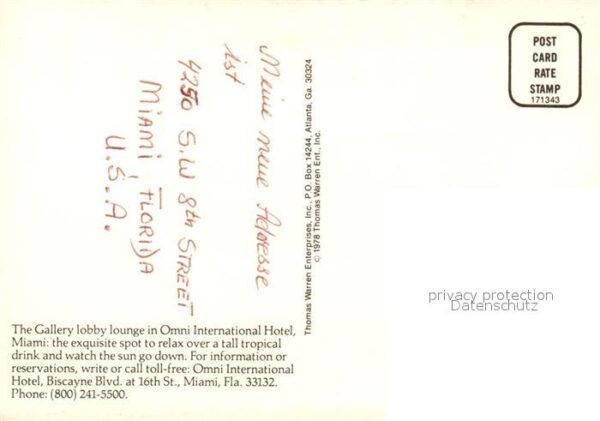 POST
CARD
RATE
STAMP
171343
Meine neue Adresse
ist
4250 S.W 8th STREET
MIAMI FLORIDA
U.S.A.
Thomas Warren Enterprises, Inc., P.O. Box 14244, Atlanta, Ga. 30324
© 1978 Thomas Warren Ent., Inc.
privacy protection
Datenschutz
The Gallery lobby lounge in Omni International Hotel,
Miami: the exquisite spot to relax over a tall tropical
drink and watch the sun go down. For information or
reservations, write or call toll-free: Omni International
Hotel, Biscayne Blvd. at 16th St., Miami, Fla. 33132.
Phone: (800) 241-5500.